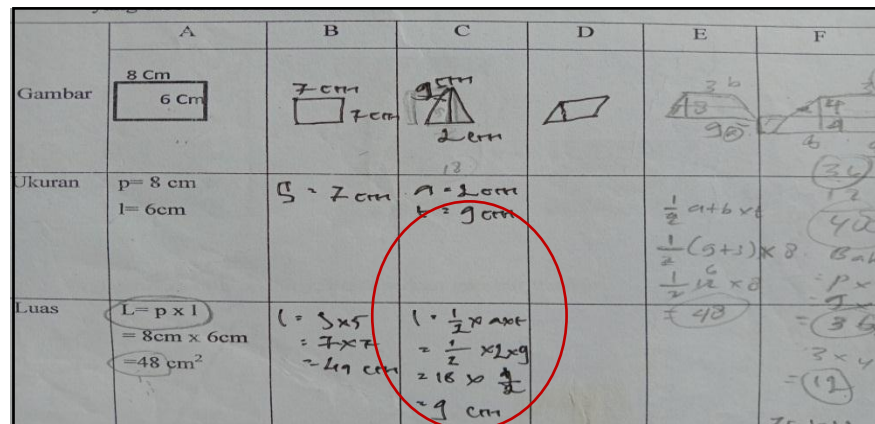 A B C D E F
Gambar
8 Cm
6 Cm
7 cm
7 cm
9 cm
2 cm
3 b
8
4
4
b
18
Ukuran
p= 8 cm
l= 6cm
S = 7 cm
a = 2 cm
t = 9 cm
1/2 a+b xt
1/2 (9+3) x 8
1/2 12 x 8
6
= 48
36
12
Luas
L= p x l
= 8cm x 6cm
=48 cm²
l = S x S
= 7 x 7
= 49 cm
l = 1/2 x axt
= 1/2 x 2 x 9
= 18 x 1/2
= 9 cm
= p x
= 36
3 x 4
= 12